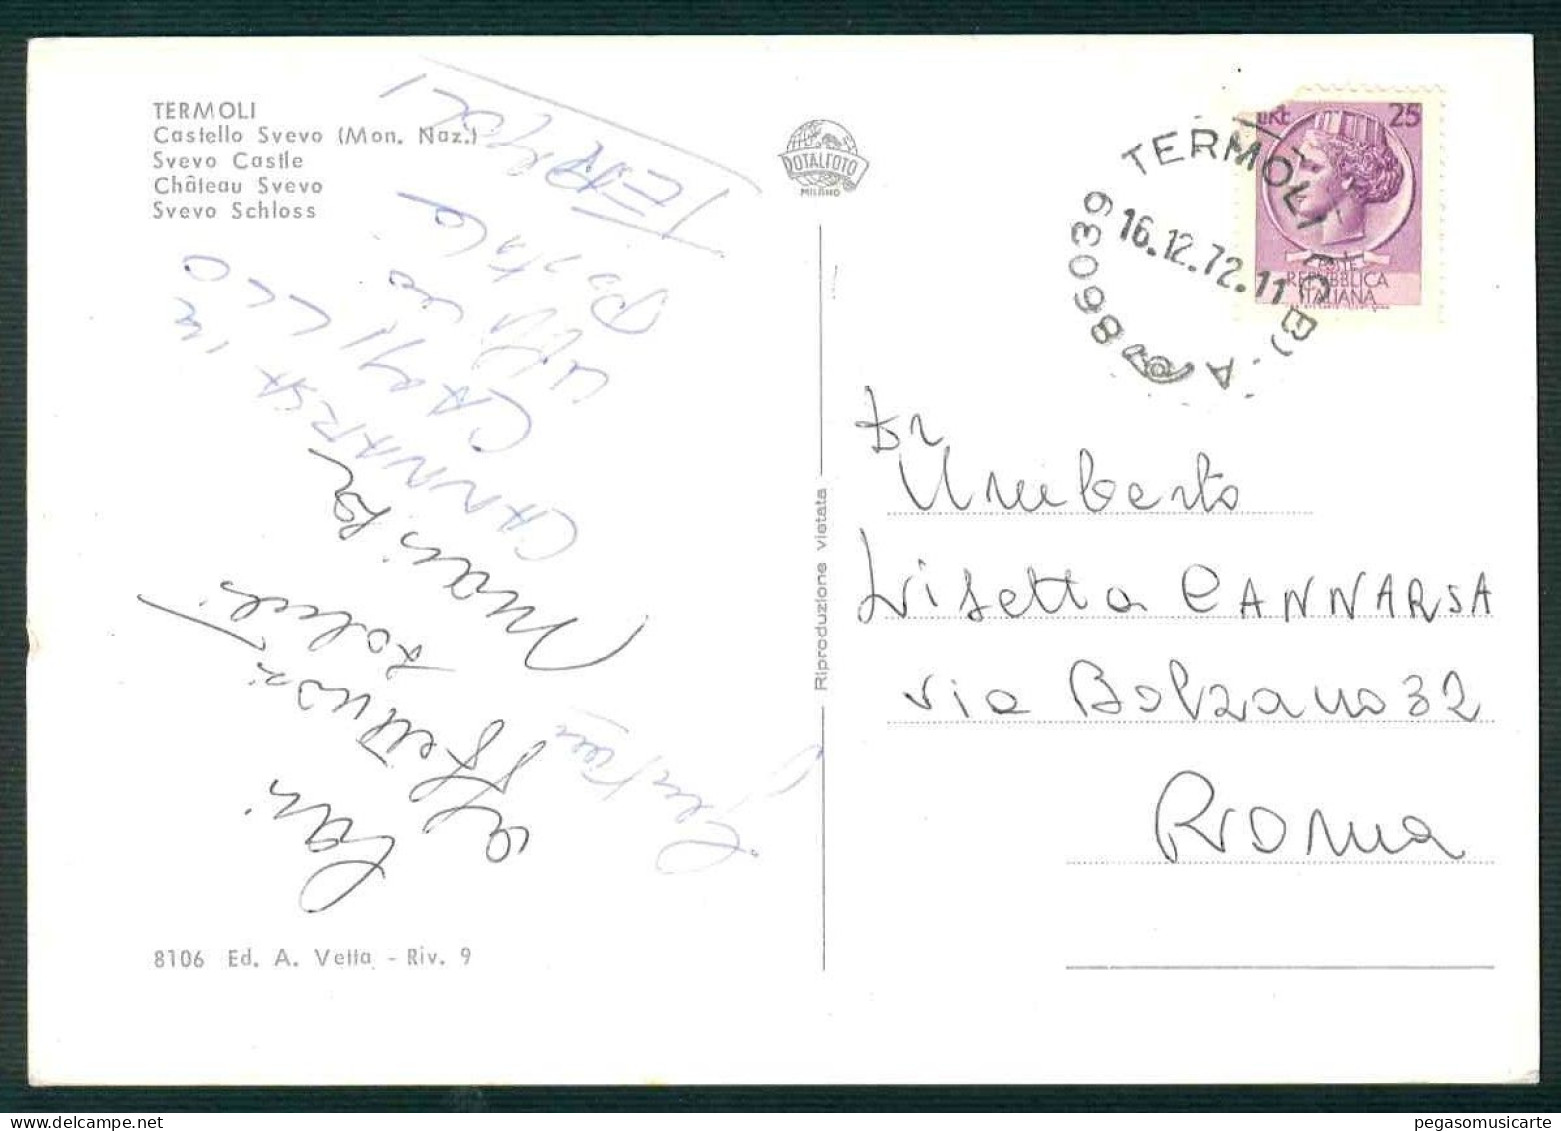 TERMOLI
Castello Svevo (Mon. Naz.)
Svevo Castle
Château Svevo
Svevo Schloss
TERMOLI
Postale
ufficio
CAMILLO
CANNARSA
Marisa
affettuosi
cari
8106 Ed. A. Vetta - Riv. 9
ROTALFOTO
MILANO
Riproduzione vietata
86039 TERMOLI (CB) - A
16.12.72.11
LIRE 25
POSTE
REPUBBLICA
ITALIANA
Dr
Umberto
Lisetta CANNARSA
via Bolzano 32
Roma
pegasomusicarte